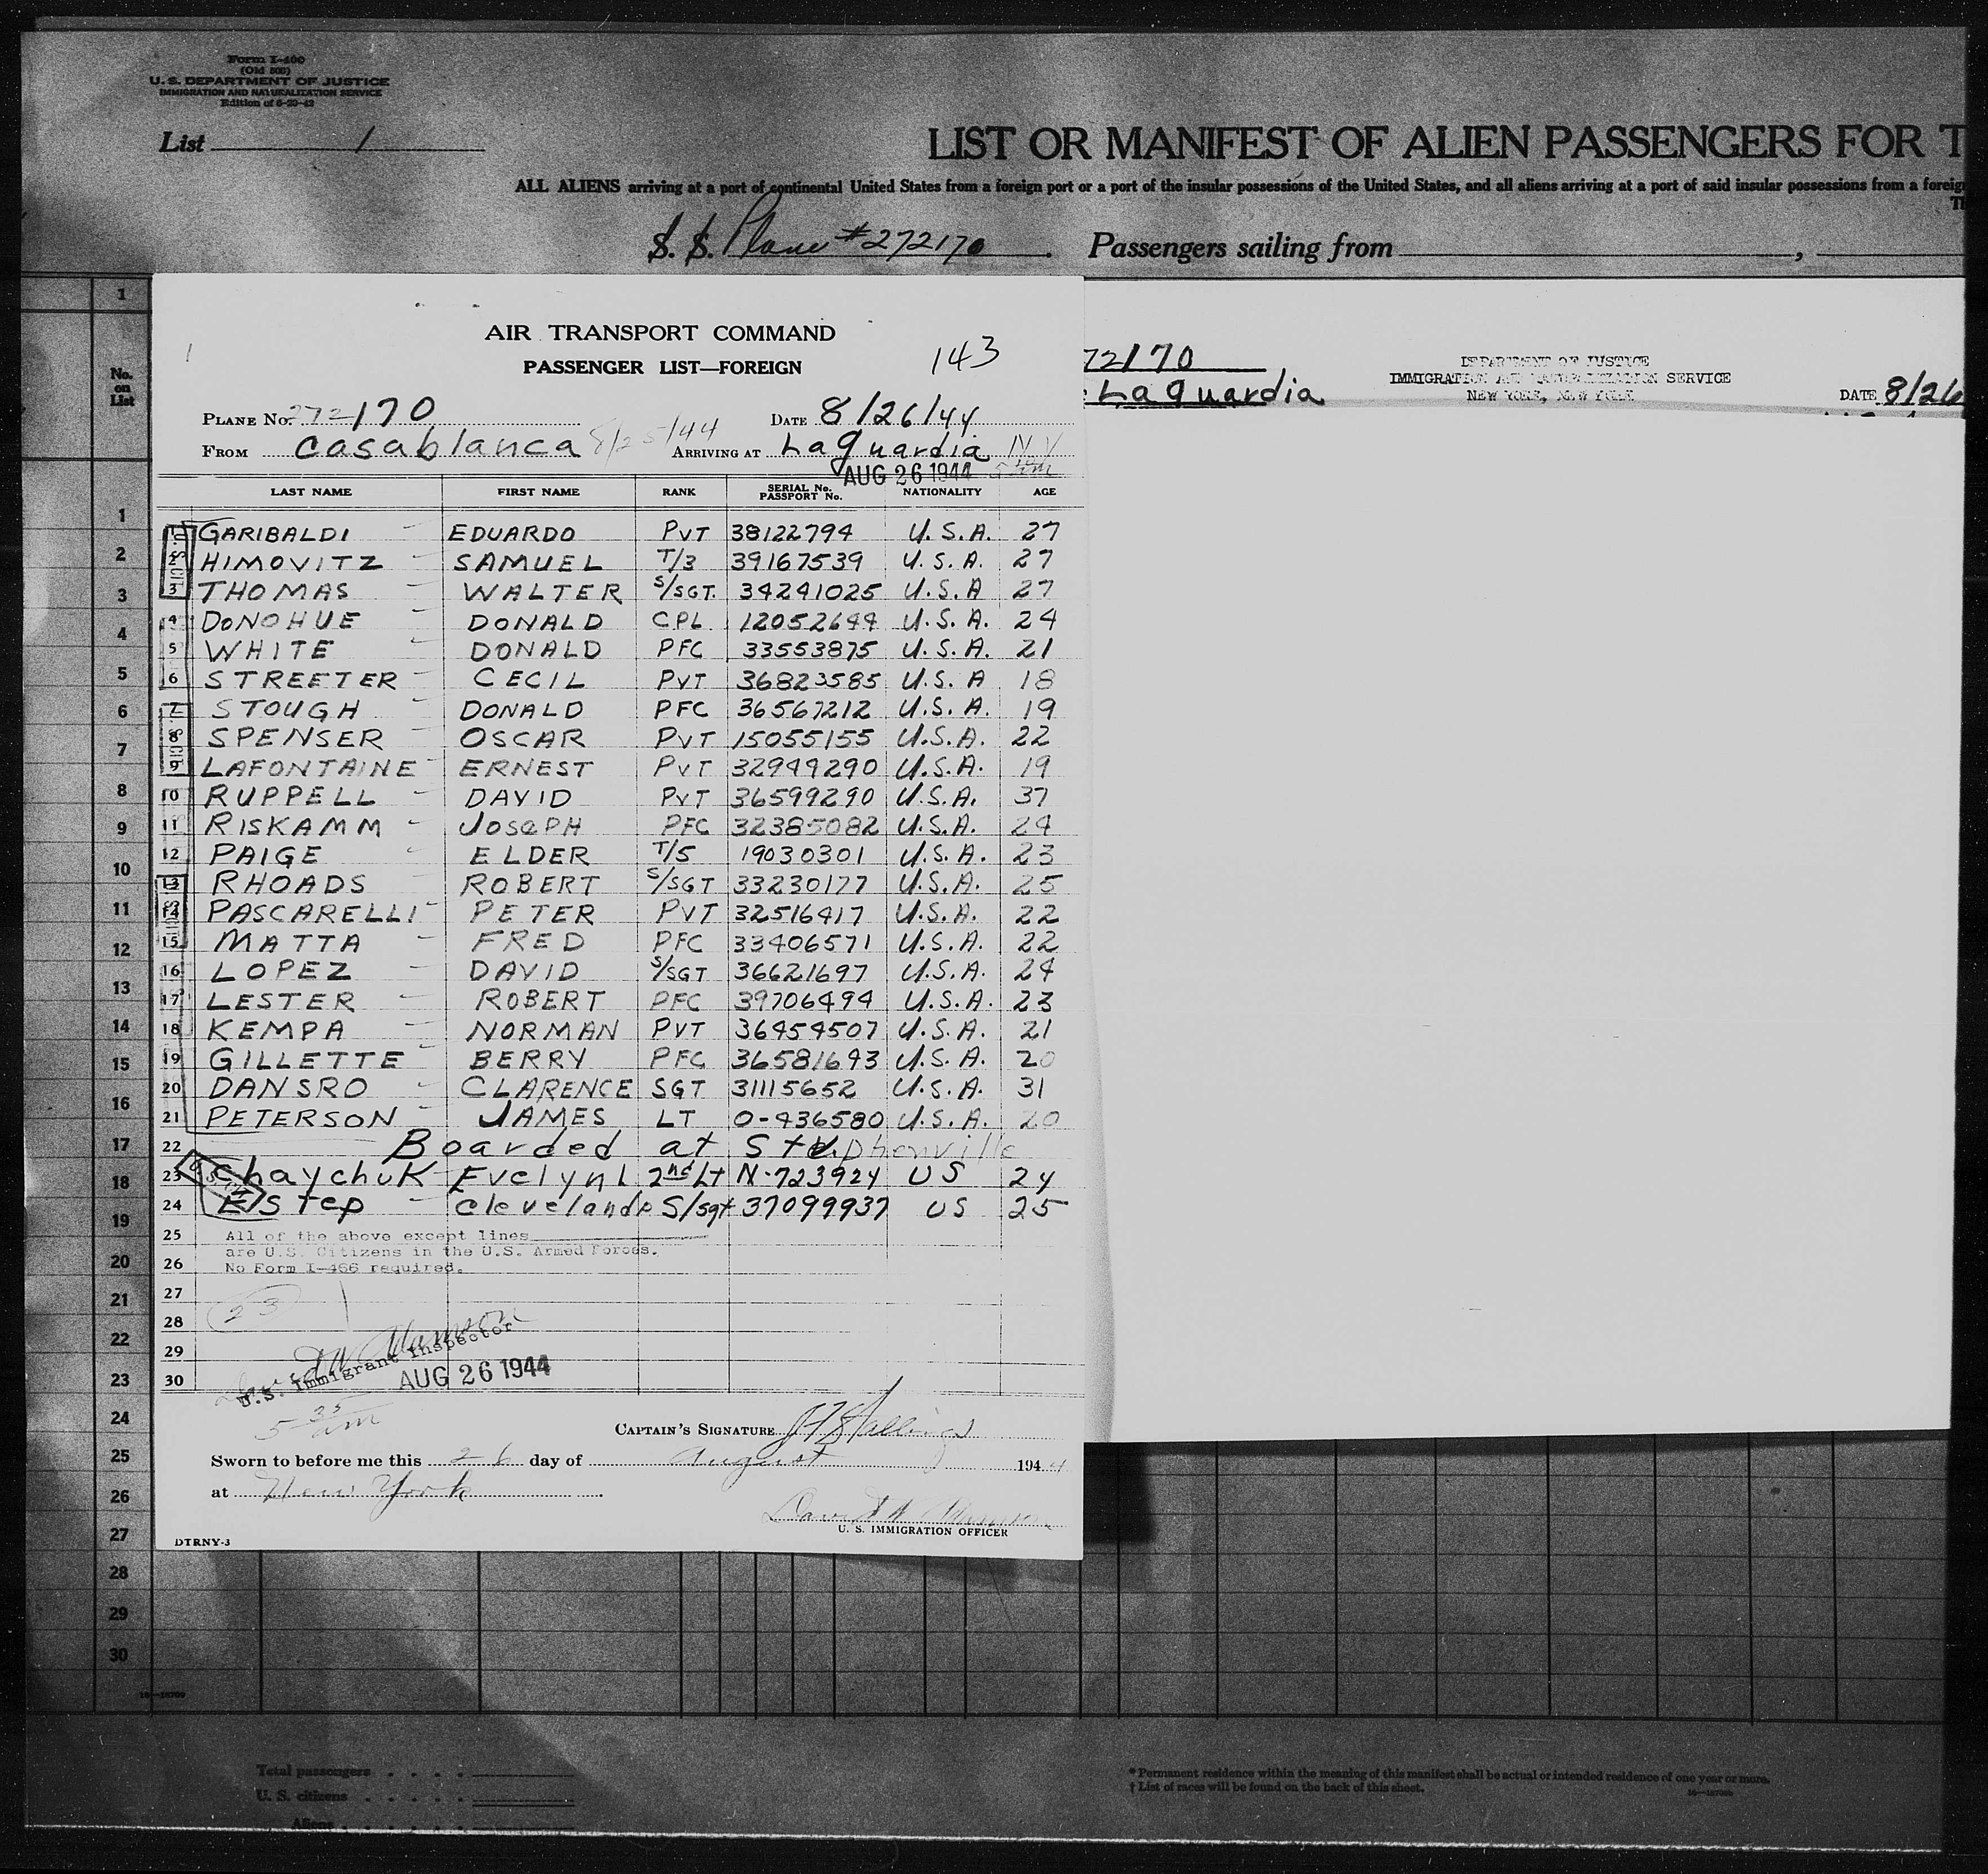 Form I-400
(Old 500)
U. S. DEPARTMENT OF JUSTICE
IMMIGRATION AND NATURALIZATION SERVICE
Edition of 6-20-42
List 1
LIST OR MANIFEST OF ALIEN PASSENGERS FOR T
ALL ALIENS arriving at a port of continental United States from a foreign port or a port of the insular possessions of the United States, and all aliens arriving at a port of said insular possessions from a foreig
S. S. Plane #272170 . Passengers sailing from ,
No. on List
AIR TRANSPORT COMMAND
PASSENGER LIST—FOREIGN
143
PLANE No. 272170 DATE 8/26/44
FROM Casablanca 8/25/44 ARRIVING AT LaGuardia N Y
AUG 26 1944
72170
LaGuardia
DEPARTMENT OF JUSTICE
IMMIGRATION AND NATURALIZATION SERVICE
NEW YORK, NEW YORK
DATE 8/26
LAST NAME FIRST NAME RANK SERIAL No. PASSPORT No. NATIONALITY AGE
1 GARIBALDI - EDUARDO PVT 38122794 U.S.A. 27
2 HIMOVITZ - SAMUEL T/3 39167539 U.S.A. 27
3 THOMAS - WALTER S/SGT. 34241025 U.S.A 27
4 DONOHUE - DONALD CPL 12052644 U.S.A. 24
5 WHITE - DONALD PFC 33553875 U.S.A. 21
6 STREETER - CECIL PVT 36823585 U.S.A 18
7 STOUGH - DONALD PFC 36567212 U.S.A. 19
8 SPENSER - OSCAR PVT 15055155 U.S.A. 22
9 LAFONTAINE - ERNEST PVT 32949290 U.S.A. 19
10 RUPPELL - DAVID PVT 36599290 U.S.A. 37
11 RISKAMM - JOSEPH PFC 32385082 U.S.A. 24
12 PAIGE - ELDER T/5 19030301 U.S.A. 23
13 RHOADS - ROBERT S/SGT 33230177 U.S.A. 25
14 PASCARELLI - PETER PVT 32516417 U.S.A. 22
15 MATTA - FRED PFC 33406571 U.S.A. 22
16 LOPEZ - DAVID S/SGT 36621697 U.S.A. 24
17 LESTER - ROBERT PFC 39706494 U.S.A. 23
18 KEMPA - NORMAN PVT 36454507 U.S.A. 21
19 GILLETTE - BERRY PFC 36581643 U.S.A. 20
20 DANSRO - CLARENCE SGT 31115652 U.S.A. 31
21 PETERSON - JAMES LT 0-436580 U.S.A. 20
22 Boarded at Stephenville
23 Chaychuk - Evelyn L 2nd Lt N-723924 US 24
24 Estep - Cleveland S/sgt 37099937 US 25
25 All of the above except lines
are U.S. Citizens in the U.S. Armed Forces.
26 No Form I-466 required.
27
23
28
29
U.S. Immigrant Inspector
30
AUG 26 1944
5 35 am
CAPTAIN'S SIGNATURE
Sworn to before me this 26 day of August 1944
at New York
U. S. IMMIGRATION OFFICER
DTRNY-3
1
2
3
4
5
6
7
8
9
10
11
12
13
14
15
16
17
18
19
20
21
22
23
24
25
26
27
28
29
30
Total passengers . . . .
U. S. citizens . . . . .
Aliens . . . . .
* Permanent residence within the meaning of this manifest shall be actual or intended residence of one year or more.
† List of races will be found on the back of this sheet.